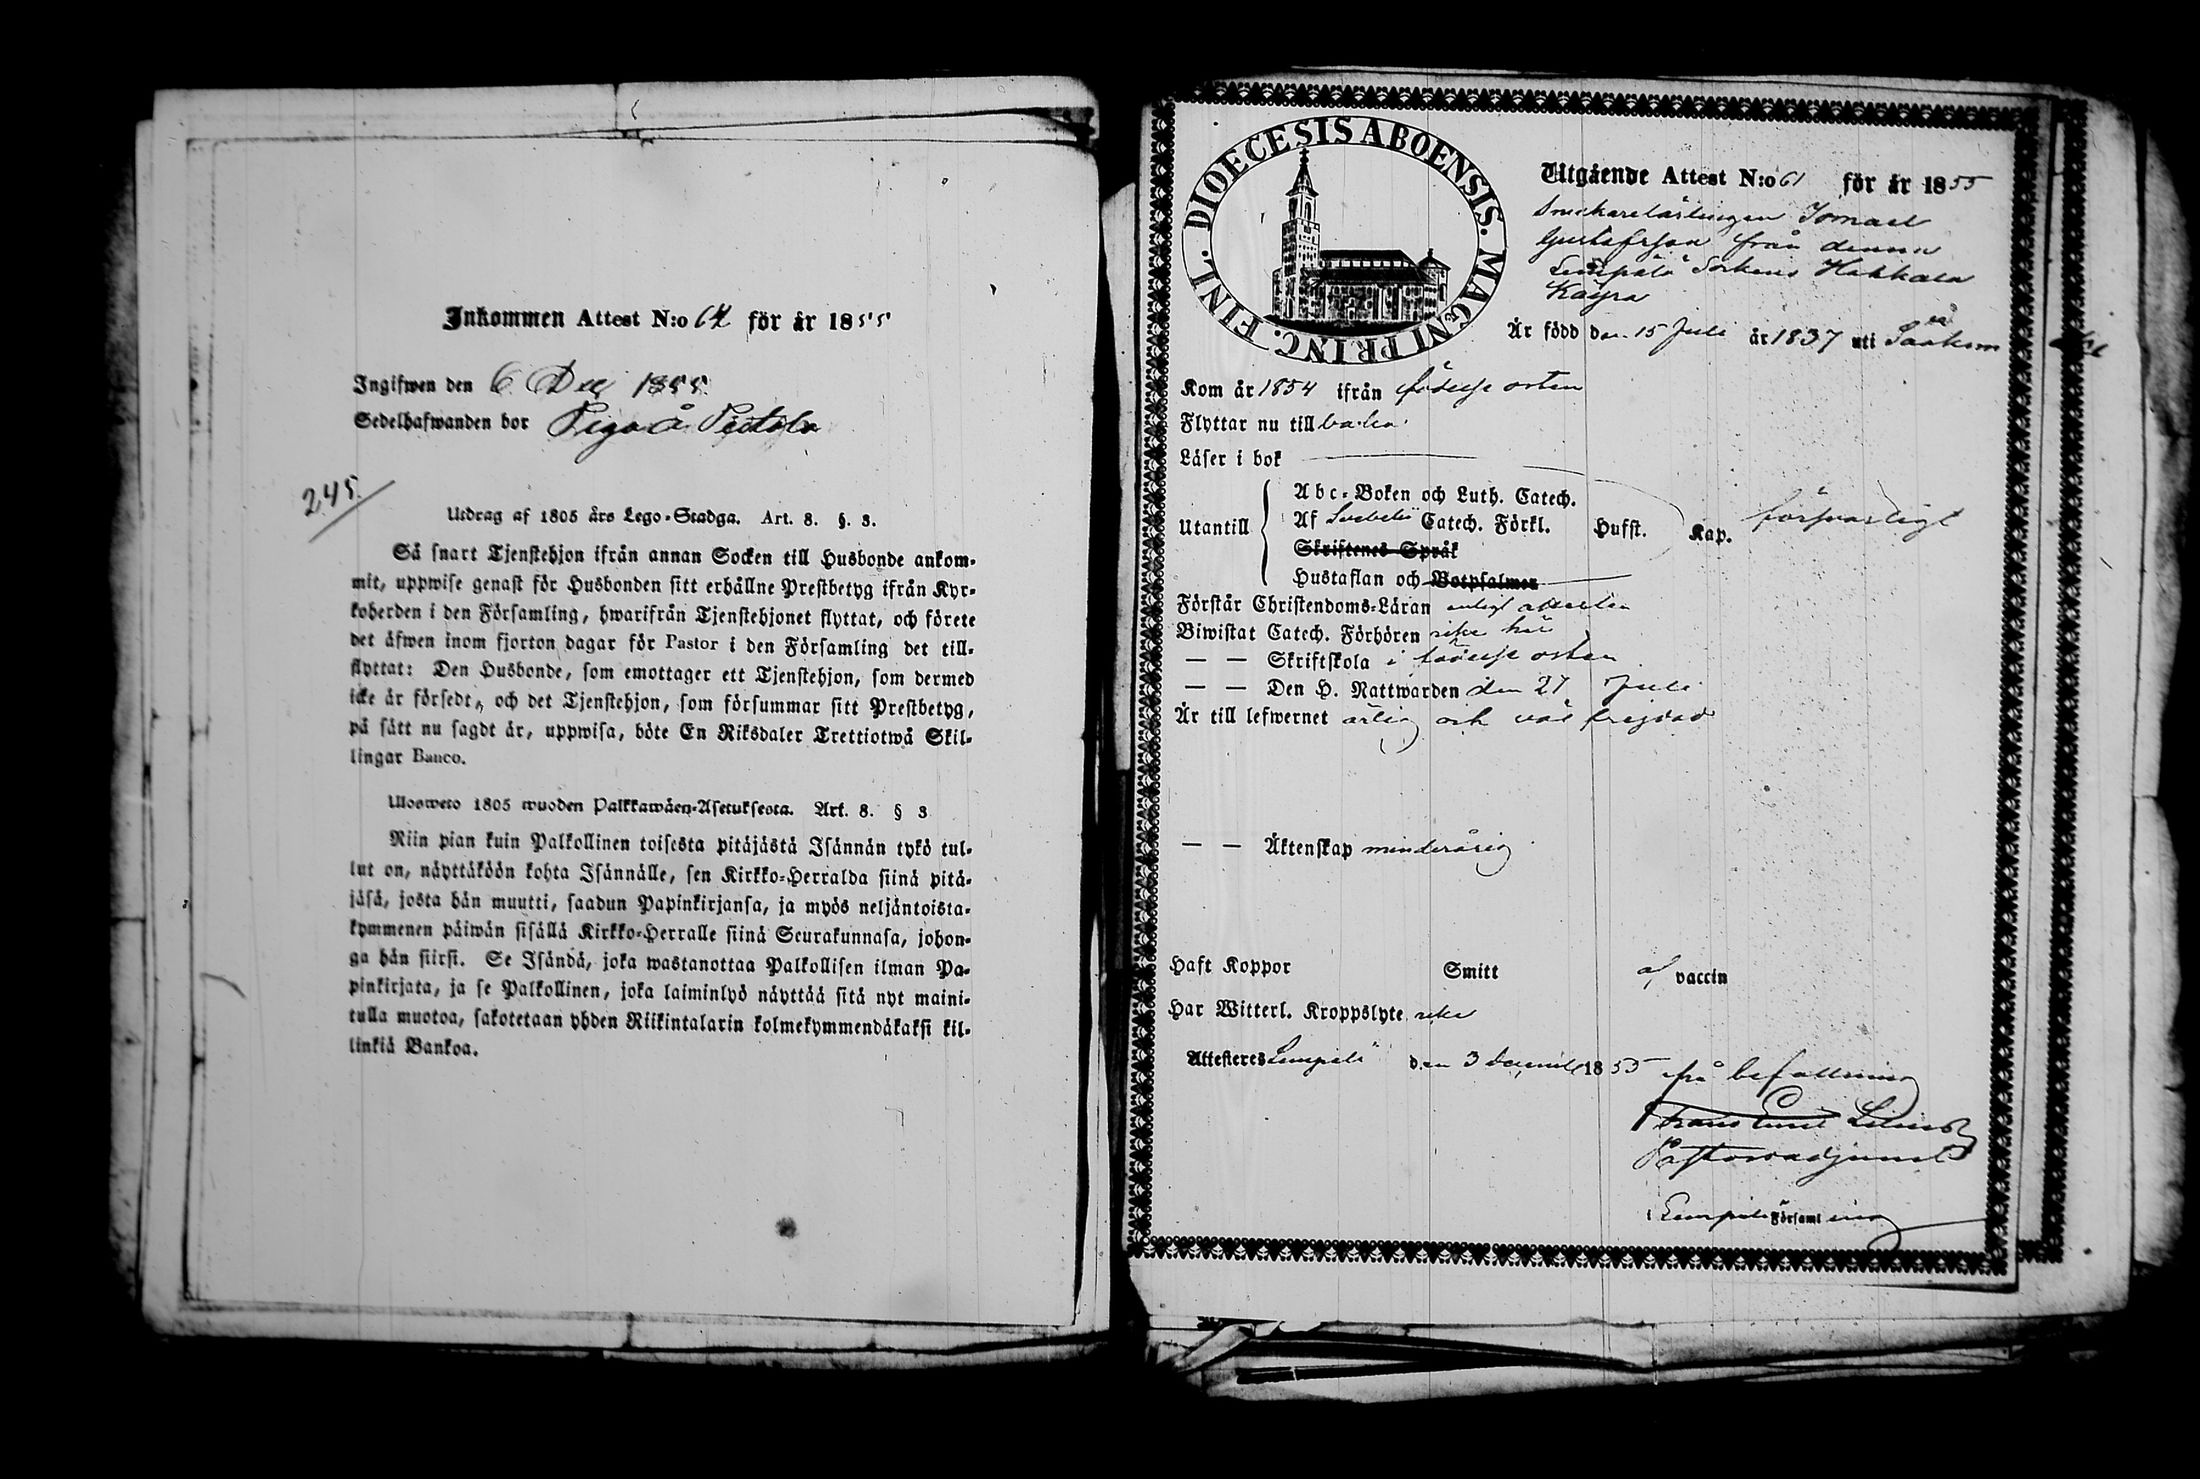 Inkommen Attest N:o 64 för år 1855
Ingifwen den 6 Dec 1855.
Sedelhafwanden bor Piga å
245
Utdrag af 1805 års Lego-Stadga. Art. 8. §. 3.
Så snart Tjenstehjon ifrån annan Socken till Husbonde ankom-
mit, uppwise genast för Husbonden sitt erhållne Prestbetyg ifrån Kyr-
koherden i den Församling, hwarifrån Tjenstehjonet flyttat, och förete
det äfwen inom fjorton dagar för Pastor i den Församling det till-
flyttat: Den Husbonde, som emottager ett Tjenstehjon, som dermed
icke är försedt, och det Tjenstehjon, som försummar sitt Prestbetyg,
på sätt nu sagdt är, uppwisa, böte En Riksdaler Trettiotwå Skil-
lingar Banco.
Ulosweto 1805 wuoden Palkkawäen-Asetuksesta. Art. 8. § 3
Niin pian kuin Palkollinen toisesta pitäjästä Isännän tykö tul-
lut on, näyttäköön kohta Isännälle, sen Kirkko-Herralda siinä pitä-
jäsä, josta hän muutti, saadun Papinkirjansa, ja myös neljäntoista-
kymmenen päiwän sisällä Kirkko-Herralle siinä Seurakunnasa, johon-
ga hän siirsi. Se Isändä, joka wastanottaa Palkollisen ilman Pa-
pinkirjata, ja se Palkollinen, joka laiminlyö näyttää sitä nyt maini-
tulla muotoa, sakotetaan yhden Riikintalarin kolmekymmendäkaksi kil-
linkiä Bankoa.
DIOECESIS ABOENSIS. MAGNI PRINC. FINL.
Utgående Attest N:o 61 för år 1855
Snickarelärlingen Ismael
Gustafsson från denna
Lempälä Sockens Hakkala
Är född den 15 Juli år 1837 uti
Kom år 1854 ifrån födelse orten
Flyttar nu till baka
Läser i bok
Utantill
Abc-Boken och Luth. Catech.
Af Svebelii Catech. Förkl. Husst. Kap. försvarligt
Skriftenes Språk
Hustaflan och Botpsalmer
Förstår Christendoms-Läran enligt attesten
Biwistat Catech. Förhören icke här
— — Skriftskola i födelse orten
— — Den H. Nattwarden den 27 Juli
Är till lefwernet ärlig och väl frejdad
— — Äktenskap minderårig
Haft Koppor Smitt af vaccin
Har Witterl. Kroppslyte icke
Attesteres Lempälä den 3 December 1855 på befallning
Pastorsadjunct
i Lempälä Församling